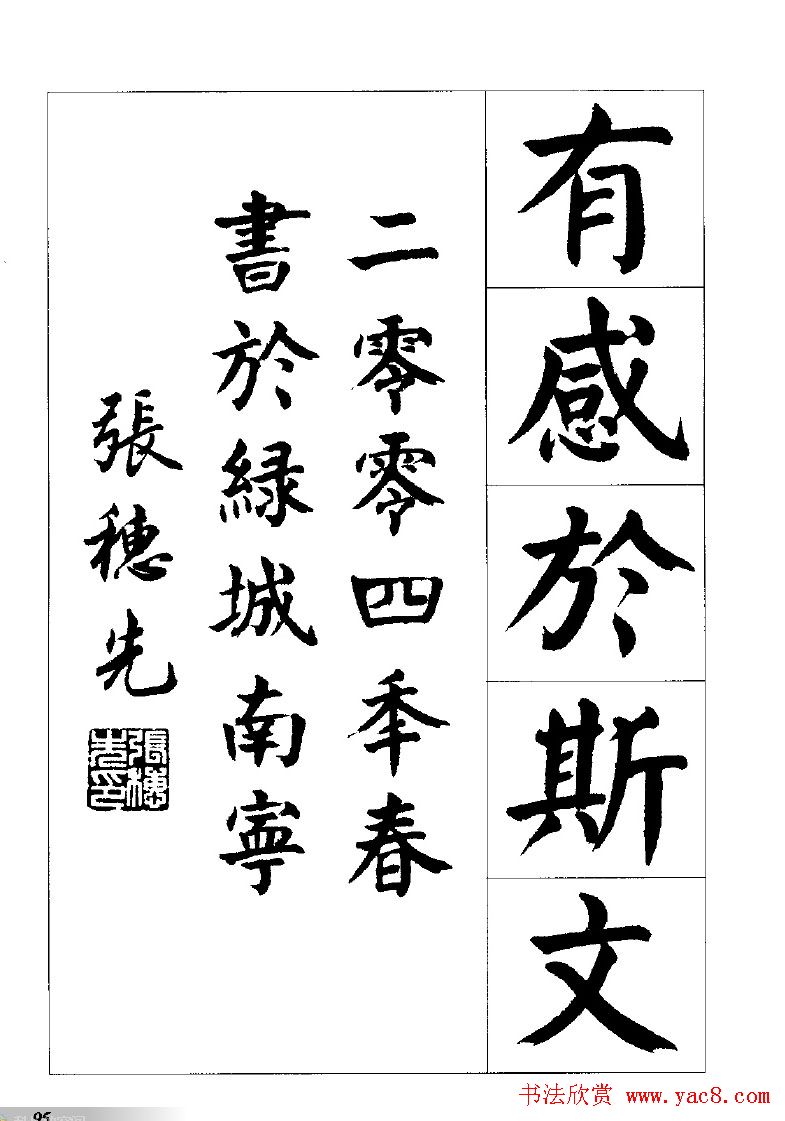 有感於斯文
二零零四季春
書於緑城南寧
張穗先
張穗先印
95
书法欣赏 www.yac8.com